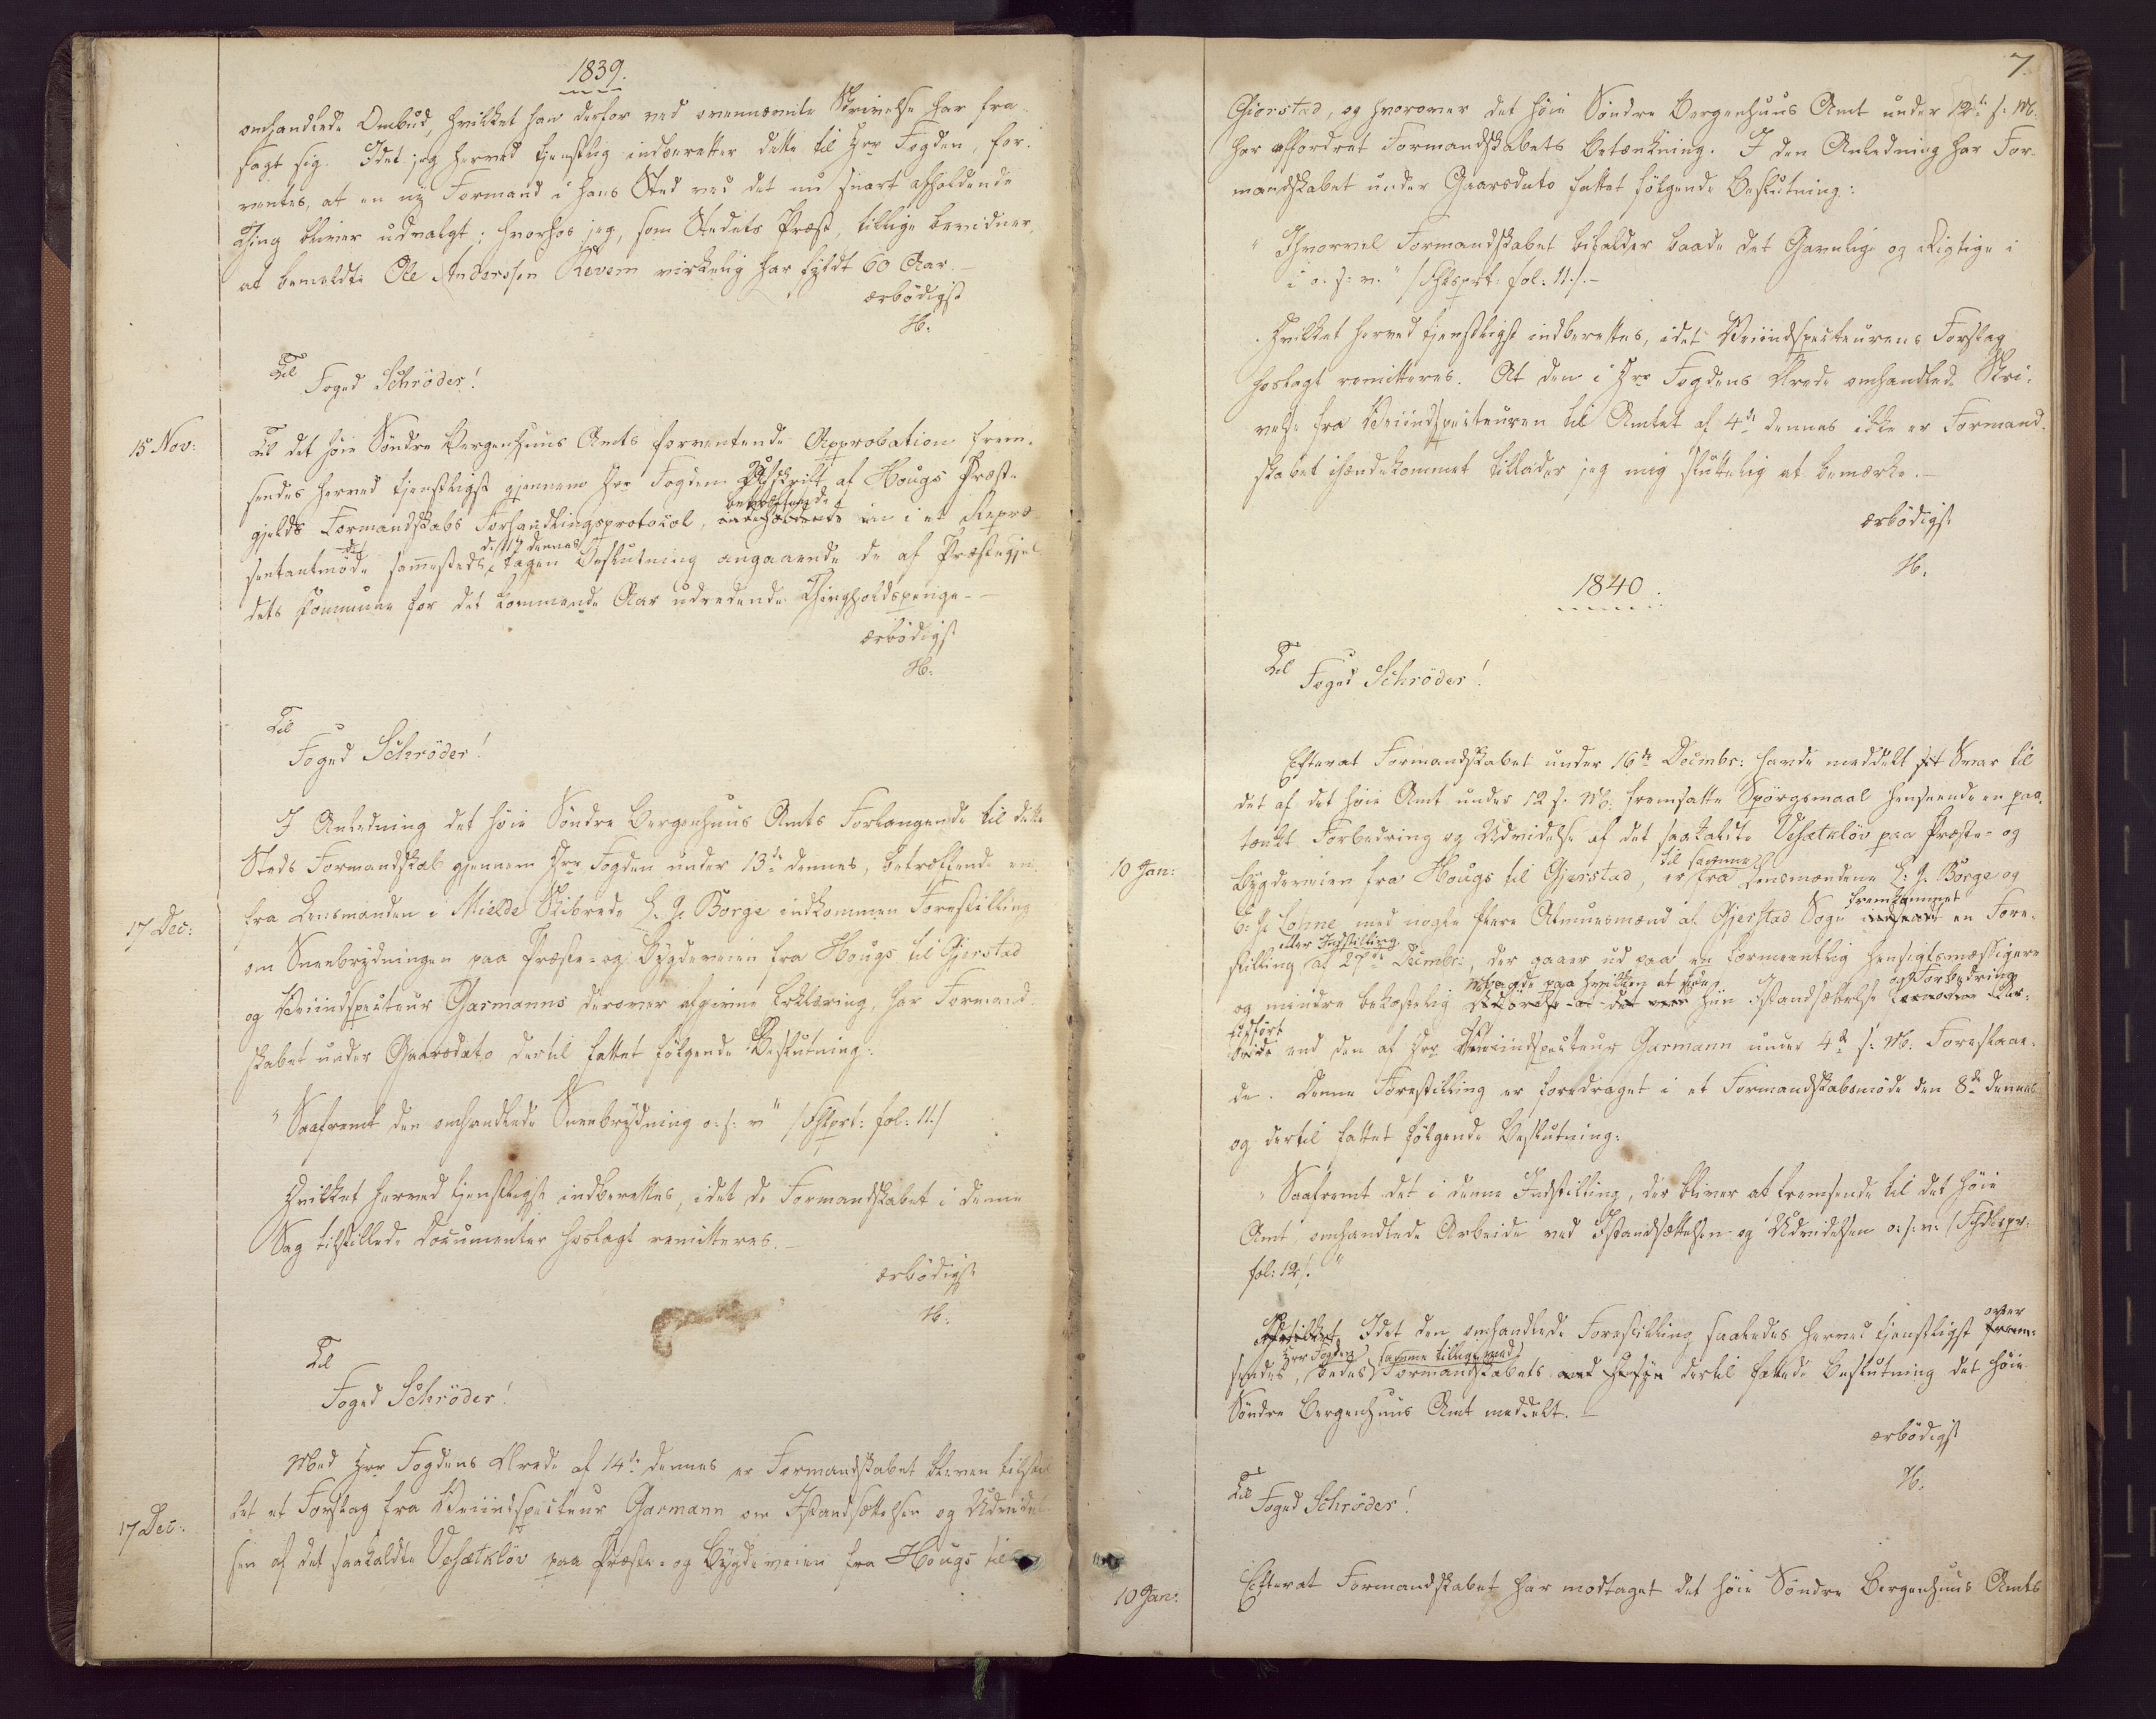 1839.
omhandlede Ombud, hvilket han derfor ved ovennævnte Skrivelse har fra-
sagt sig. Idet jeg herved tjenstlig indberetter dette til Hrr Fogden, for-
ventes, at en ny Formand i hans Sted ved det nu snart afholdende
Thing bliver udvalgt; hvorhos jeg, som Stedets Præst, tillige bevidner,
at bemeldte Ole Anderssen Revem virkelig har fyldt 60 Aar. —
ærbödigst
H.
Til
Foged Schröder!
15 Nov:
Til det höie Söndre Bergenhuus Amts forventende Approbation frem-
sendes herved tjenstligst gjennem Hrr Fogden Udskrift af Hougs Præste-
gjelds Formandskabs Forhandlingsprotocol, indeholdende en i et Repræ-
sentantmöde sammesteds tagen Beslutning angaaende de af Præstegjel-
den 14 dennes
dets Commune for det kommende Aar udredende Thingholdspenge. —
ærbödigst
H.
Til
Foged Schröder!
17 Dec:
I Anledning det höie Söndre Bergenhuus Amts Forlangende til dette
Steds Formandskab gjennem Hrr Fogden under 13de dennes, betræffende en
fra Lensmanden i Mielde Skibrede H. J. Borge indkommen Forestilling
om Sneebrydningen paa Præste- og Bygdeveien fra Hougs til Gjerstad
og Veiinspecteur Garmanns derover afgivne Erklæring, har Formand-
skabet under Gaarsdato dertil fattet fölgende Beslutning:
"Saafremt den omhandlede Sneebrydning o: s: v" /Fhlprt: fol: 11./
Hvilket herved tjenstligst indberettes, idet de Formandskabet i denne
Sag tilstillede Documenter hoslagt remitteres. —
ærbödigst
H.
Til
Foged Schröder!
17 Dec:
Med Hrr Fogdens Ærede af 14de dennes er Formandskabet bleven tilstil-
let et Forslag fra Veiindspecteur Garmann om Istandsættelsen og Udvidel-
sen af det saakaldte Vesætklöv paa Præste- og Bygdeveien fra Hougs til
7.
Gjerstad, og hvorover det höie Söndre Bergenhuus Amt under 12te s: M.
har affordret Formandskabets Betænkning. I den Anledning har For-
mandskabet under Gaarsdato fattet fölgende Beslutning:
"Ihvorvel Formandskabet bifalder baade det Gavnlige og Rigtige i
i o: s: v." /Fhlsprt: fol: 11./. —
Hvilket herved tjenstligst indberettes, idet Veiindspecteurens Forslag
hoslagt remitteres. At den i Hrr Fogdens Ærede omhandlede Skri-
velse fra Veiindspecteuren til Amtet af 4de dennes ikke er Formand-
skabet ihændekommet tillader jeg mig sluttelig at bemærke. —
ærbödigst
H.
1840.
Til
Foged Schröder!
10 Jan:
Efterat Formandskabet under 16de Decmbr: havde meddelt sit Svar til
det af det höie Amt under 12 s: M: fremsatte Spörgsmaal henseende en paa-
tænkt Forbedring og Udvidelse af det saakaldte Vesætklöv paa Præste- og
Bygdeveien fra Hougs til Gjerstad, er fra Lensmændene H: J. Borge og
til samme
B: J: Lohne med nogle flere Almuesmænd af Gjerstad Sogn fremkommet en Fore-
stilling eller Indstilling af 27de Decmbr:, der gaaer ud paa en formeentlig hensigtsmæssigere
og mindre bekostelig Maade paa hvilken at see hiin Istandsættelse og Forbedring
udfört end den af Hrr Veiindspecteur Garmann under 4de s: M. Foreslaae-
de. Denne Forestilling er foredraget i et Formandskabsmöde den 8de dennes
og dertil fattet fölgende Beslutning:
"Saafremt det i denne Indstilling, der bliver at fremsende til det höie
Amt, omhandlede Arbeide ved Istandsættelsen og Udvidelsen o: s: v: /Fhdlspr:
fol: 12/."
Idet den omhandlede Forestilling saaledes herved tjenstligst over-
sendes, bedes Hrr Fogden samme tilligemed Formandskabets dertil fattede Beslutning det höie
Söndre Bergenhuus Amt meddelt. —
ærbödigst
H.
Til
Foged Schröder!
10 Jan:
Efterat Formandskabet har modtaget det höie Söndre Bergenhuus Amts